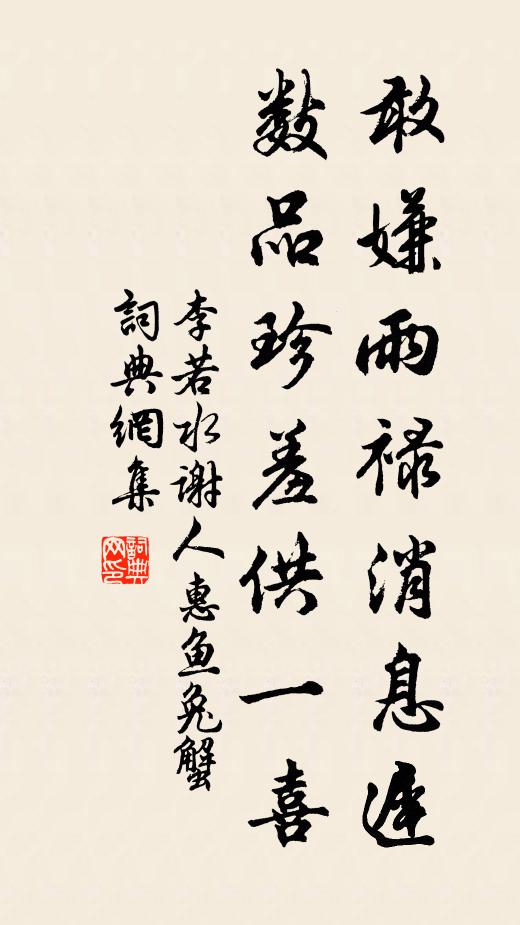 敢嫌雨禄消息遲
數品珍羞供一喜
李若水谢人惠鱼兔蟹
詞典網集
詞典
网印